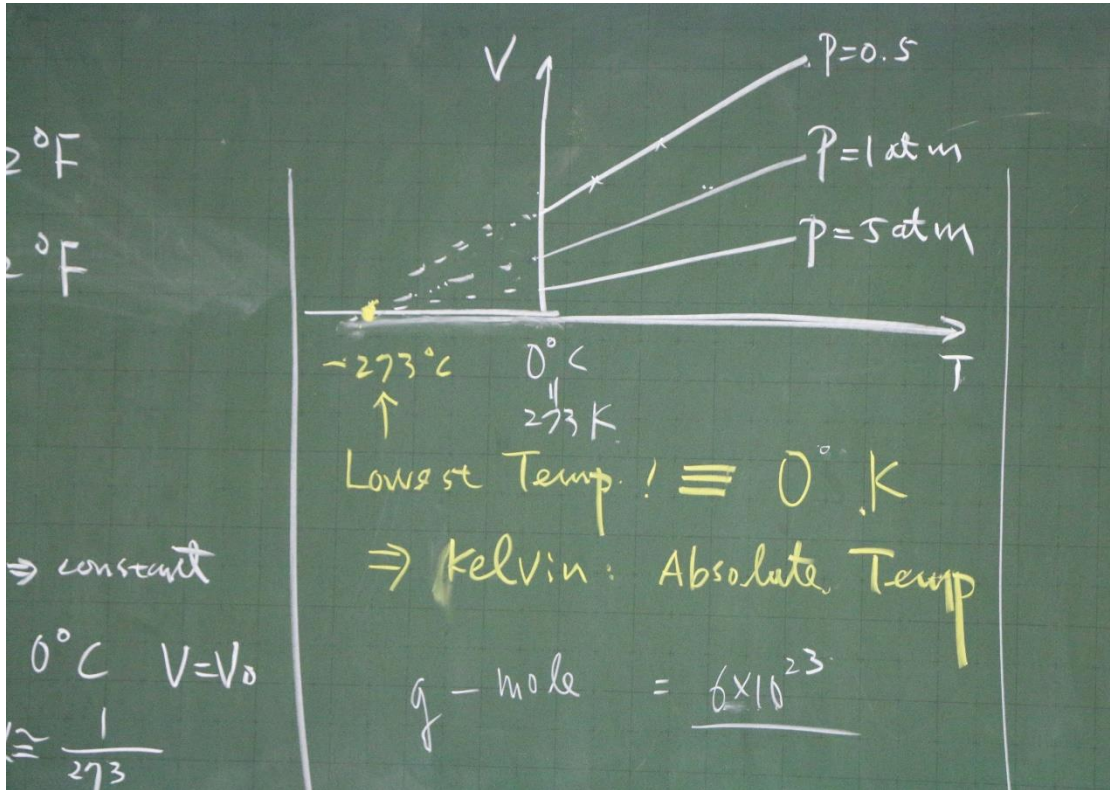 2°F
2°F
⇒ constant
0°C V=V₀
≅ 1/273
V
P=0.5
P=1atm
P=5atm
T
-273°C
↑
0°C
"
273K
Lowest Temp! ≡ 0°K
⇒ Kelvin: Absolute Temp
g-mole = 6×10²³